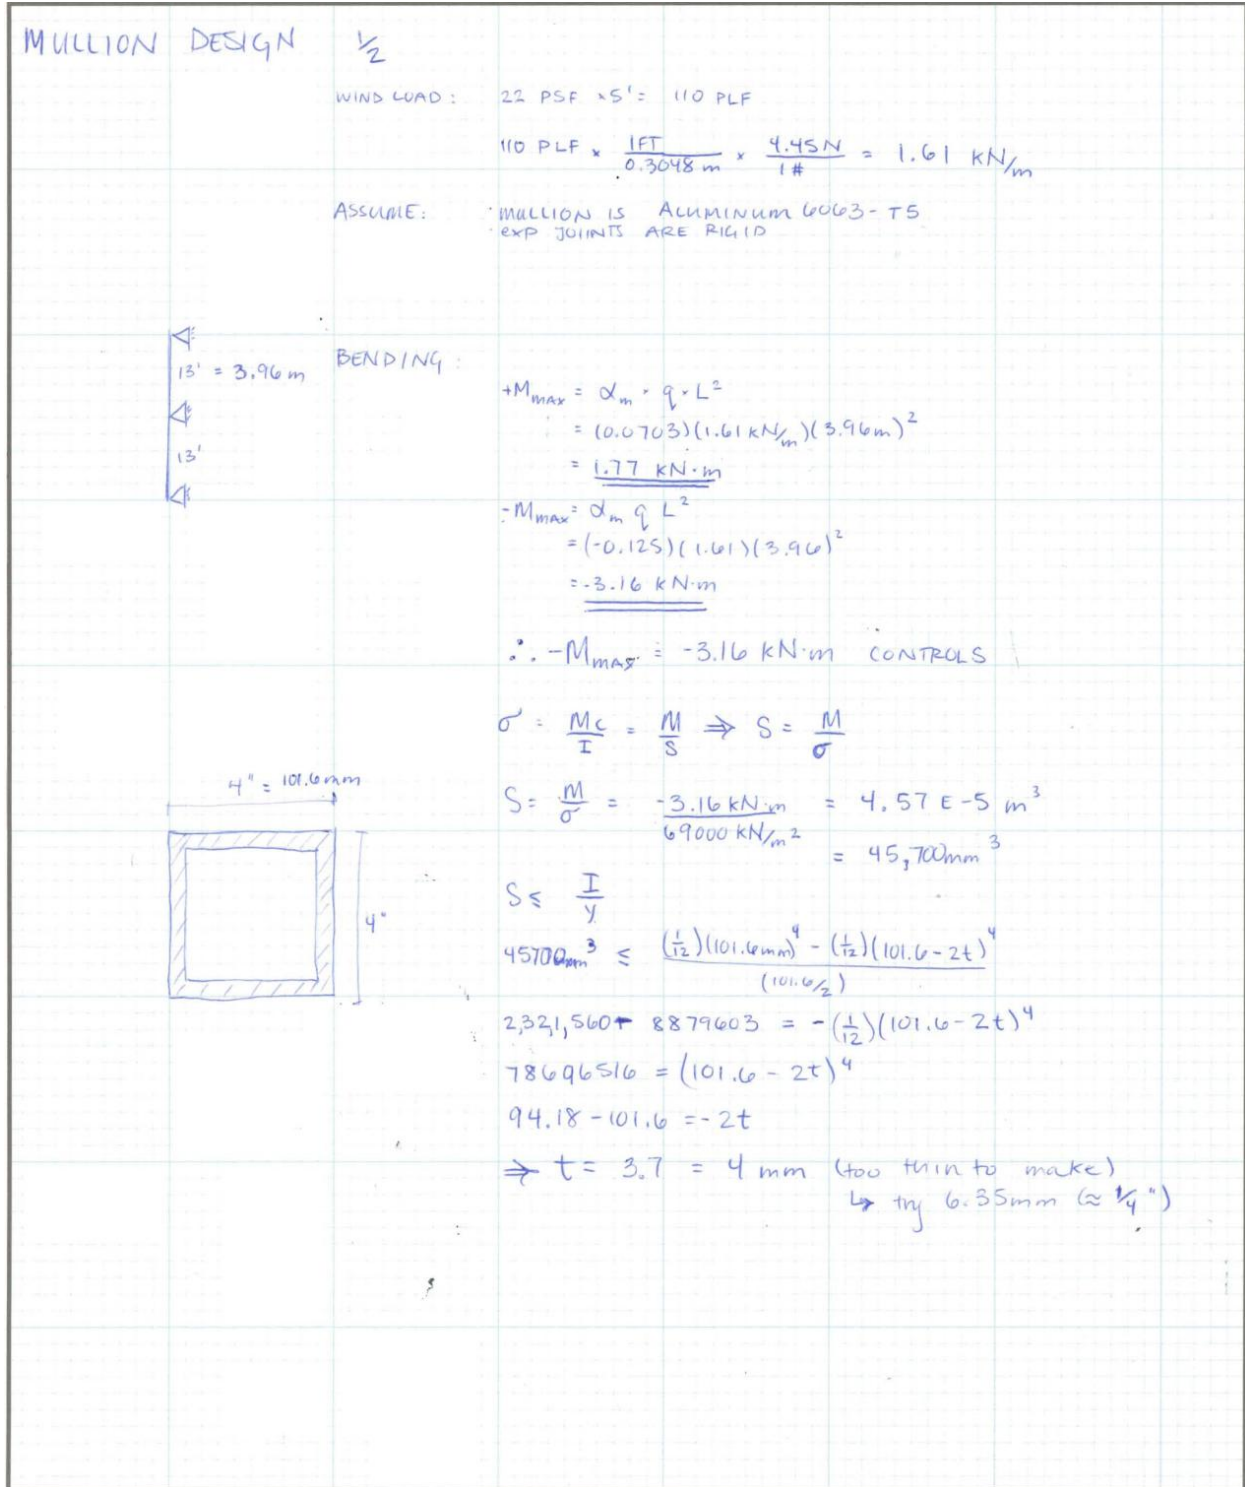 MULLION DESIGN 1/2
WIND LOAD: 22 PSF × 5' = 110 PLF
110 PLF × 1FT/0.3048 m × 4.45N/1# = 1.61 kN/m
ASSUME: · MULLION IS ALUMINUM 6063-T5
· EXP JOINTS ARE RIGID
13' = 3.96 m
13'
BENDING:
+Mmax = αm · q · L²
= (0.0703)(1.61 kN/m)(3.96m)²
= 1.77 kN·m
-Mmax = αm q L²
= (-0.125)(1.61)(3.96)²
= -3.16 kN·m
∴ -Mmax = -3.16 kN·m CONTROLS
σ = Mc/I = M/S ⇒ S = M/σ
4" = 101.6mm
4"
S = M/σ = -3.16 kN·m / 69000 kN/m² = 4.57 E-5 m³
= 45,700mm³
S ≤ I/y
45700mm³ ≤ (1/12)(101.6mm)⁴ - (1/12)(101.6-2t)⁴ / (101.6/2)
2,321,560 - 8879603 = -(1/12)(101.6-2t)⁴
78696516 = (101.6 - 2t)⁴
94.18 - 101.6 = -2t
⇒ t = 3.7 = 4 mm (too thin to make)
↳ try 6.35mm (≈ 1/4")